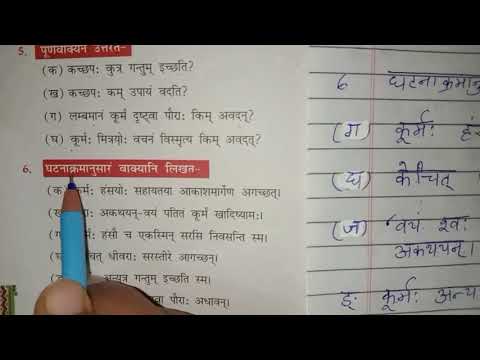 5. पूर्णवाक्येन उत्तरत-
(क) कच्छपः कुत्र गन्तुम् इच्छति?
(ख) कच्छपः कम् उपायं वदति?
(ग) लम्बमानं कूर्मं दृष्ट्वा पौराः किम् अवदन्?
(घ) कूर्मः मित्रयोः वचनं विस्मृत्य किम् अवदत्?
6. घटनाक्रमानुसारं वाक्यानि लिखत-
(क) हंसयोः सहायतया आकाशमार्गेण अगच्छत्।
अकथयन्-वयं पतितं कूर्मं खादिष्यामः।
हंसौ च एकस्मिन् सरसि निवसन्ति स्म।
धीवराः सरस्तीरे आगच्छन्।
अन्यत्र गन्तुम् इच्छति स्म।
पौराः अधावन्।
6 घटनाक्रमानु
(ग) कूर्मः हं
(घ) केचित्
(ज) 'वयं श्वः
अकथयन्।
ङ. कूर्मः अन्य